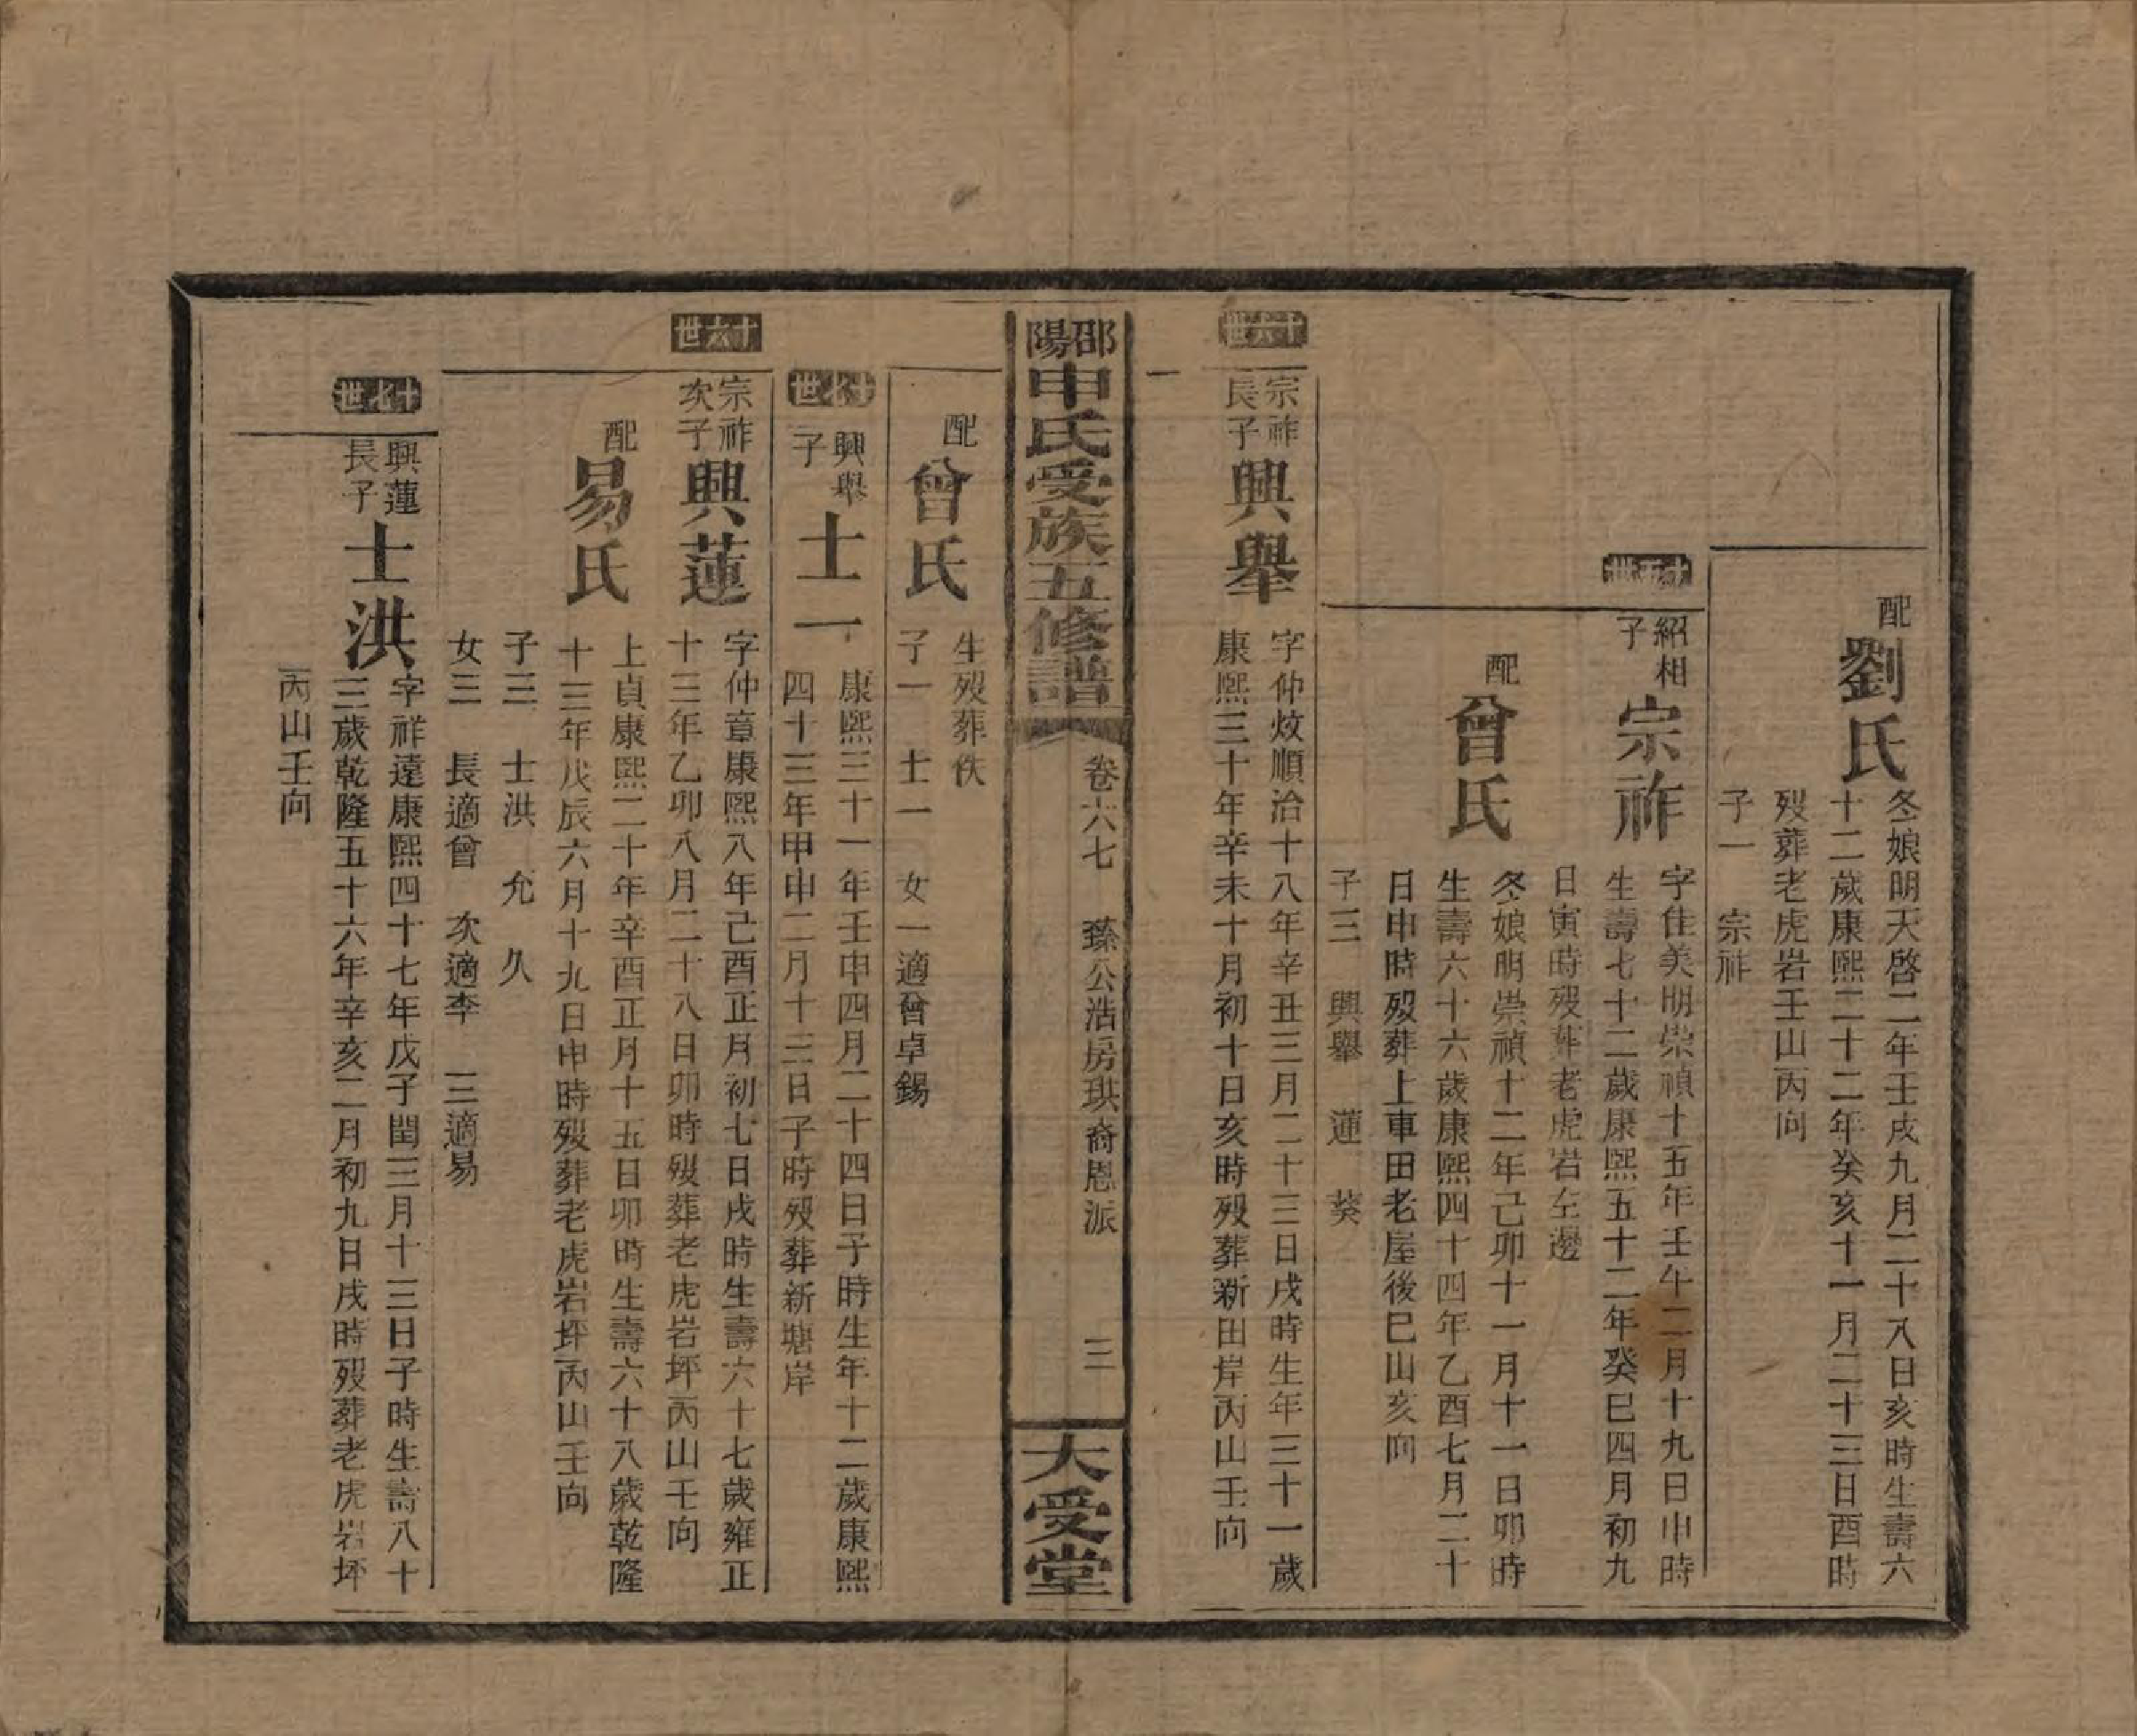 配
劉氏
冬娘明天啓二年壬戌九月二十八日亥時生壽六
十二歲康熙二十二年癸亥十一月二十三日酉時
歿葬老虎岩壬山丙向
子一　宗祚
十五世
紹相
子
宗祚
字佳美明崇禎十五年壬午二月十九日申時
生壽七十二歲康熙五十二年癸巳四月初九
日寅時歿葬老虎岩左邊
配
曾氏
冬娘明崇禎十二年己卯十一月十一日卯時
生壽六十六歲康熙四十四年乙酉七月二十
日申時歿葬上車田老屋後巳山亥向
子三　興舉　蓮　葵
十六世
宗祚
長子
興舉
字仲炆順治十八年辛丑三月二十三日戌時生年三十一歲
康熙三十年辛未十月初十日亥時歿葬新田岸丙山壬向
邵陽申氏受族五修譜
卷六七　臻公浩房琪裔恩派　三
大受堂
配
曾氏
生歿葬佚
子一　士一　女一適曾卓錫
十七世
興舉
子
士一
康熙三十一年壬申四月二十四日子時生年十二歲康熙
四十三年甲申二月十三日子時歿葬新塘岸
十六世
宗祚
次子
興蓮
字仲章康熙八年己酉正月初七日戌時生壽六十七歲雍正
十三年乙卯八月二十八日卯時歿葬老虎岩坪丙山壬向
配
易氏
上貞康熙二十年辛酉正月十五日卯時生壽六十八歲乾隆
十三年戊辰六月十九日申時歿葬老虎岩坪丙山壬向
子三　士洪　允　久
女三　長適曾　次適李　三適易
十七世
興蓮
長子
士洪
字祥遠康熙四十七年戊子閏三月十三日子時生壽八十
三歲乾隆五十六年辛亥二月初九日戌時歿葬老虎岩坪
丙山壬向